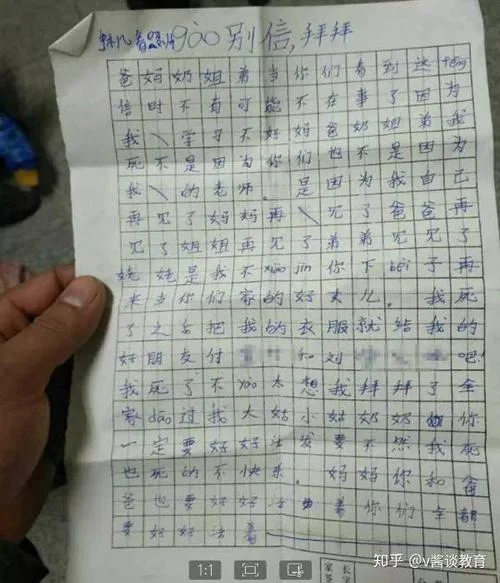 别信,拜拜
爸妈奶姐弟当你们看到这feng
信时不有可能不在事了因为
我 学习不好妈爸奶姐弟我
死不是因为你们也不是因为
我 的老师。是因为我自己
再见了妈妈再 见了爸爸再
见了姐姐再见了弟弟见见了
姥姥是我不xiao jin你下bei子再
来当你们家的好女儿。我死
了之后把我的衣服就给我的
好朋友付 和刘 吧!
我死了不yao太想我拜拜了全
家 过我大姑小姑奶奶 你
一定要好好活 要不然我死
也死的不快乐。妈妈你和爸
爸也要好好活 着你们全都
要好好活着
1:1
知乎 @v酱谈教育